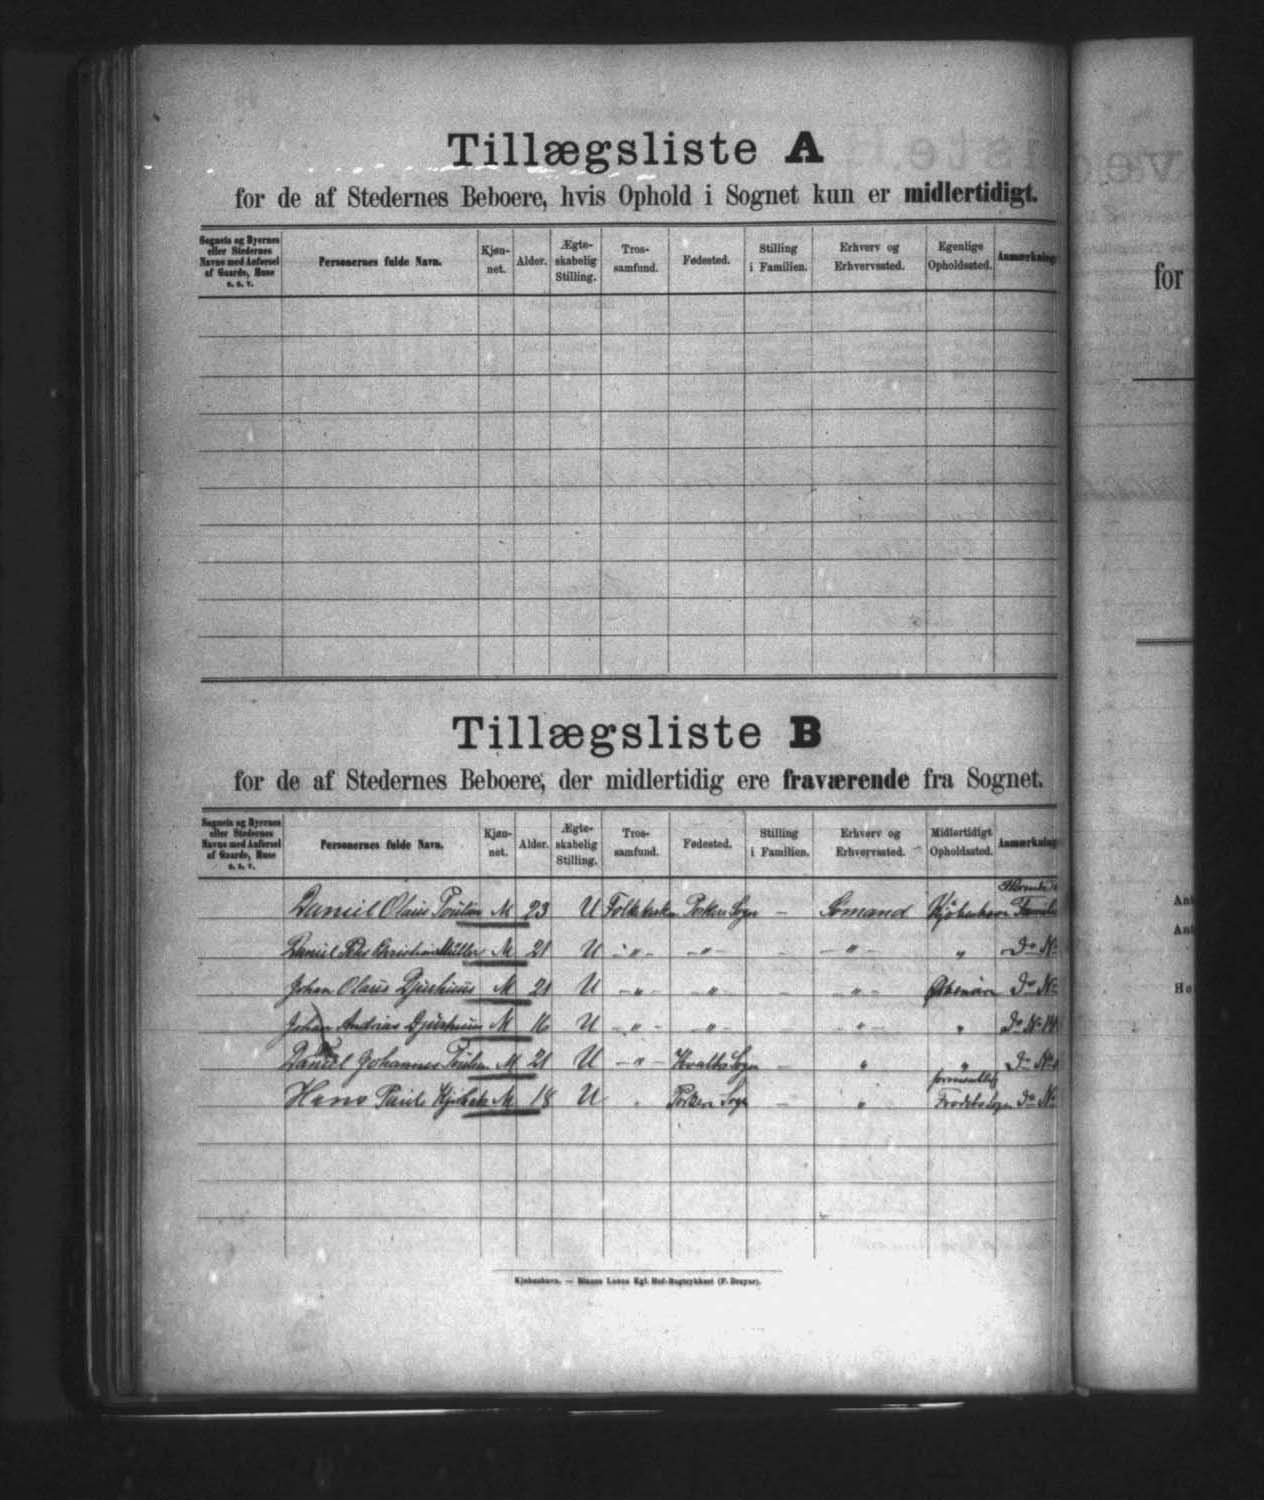 Tillægsliste A
for de af Stedernes Beboere, hvis Ophold i Sognet kun er midlertidigt.
Sognets og Byernes eller Stedernes Navne med Anførsel af Gaarde, Huse o. s. v.
Personernes fulde Navn.
Kjøn-net.
Alder.
Ægte-skabelig Stilling.
Tros-samfund.
Fødested.
Stilling i Familien.
Erhverv og Erhvervssted.
Egenlige Opholdssted.
Anmærkning
for
Tillægsliste B
for de af Stedernes Beboere, der midlertidig ere fraværende fra Sognet.
Sognets og Byernes eller Stedernes Navne med Anførsel af Gaarde, Huse o. s. v.
Personernes fulde Navn.
Kjøn-net.
Alder.
Ægte-skabelig Stilling.
Tros-samfund.
Fødested.
Stilling i Familien.
Erhverv og Erhvervssted.
Midlertidigt Opholdssted.
Anmærkning
Daniel Olaus Poulsen M 23 U Folkekirken Porkeri Sogn - Sømand Kjøbenhavn
Daniel Christian Müller M 21 U - " - - " - - - " - " Do No
Johan Olaus Djurhuus M 21 U - " - - " - - - " - Do No
Johan Andrias Djurhuus M 16 U - " - - " - - " - " Do No
Daniel Johannes Poulsen M 21 U - " - Hvalbø Sogn - " " Do No
Hans Pauli M 18 U " Porkeri Sogn - " formentlig Frodebø Sogn Do No
Kjøbenhavn. — Bianco Lunos Kgl. Hof-Bogtrykkeri (F. Dreyer).